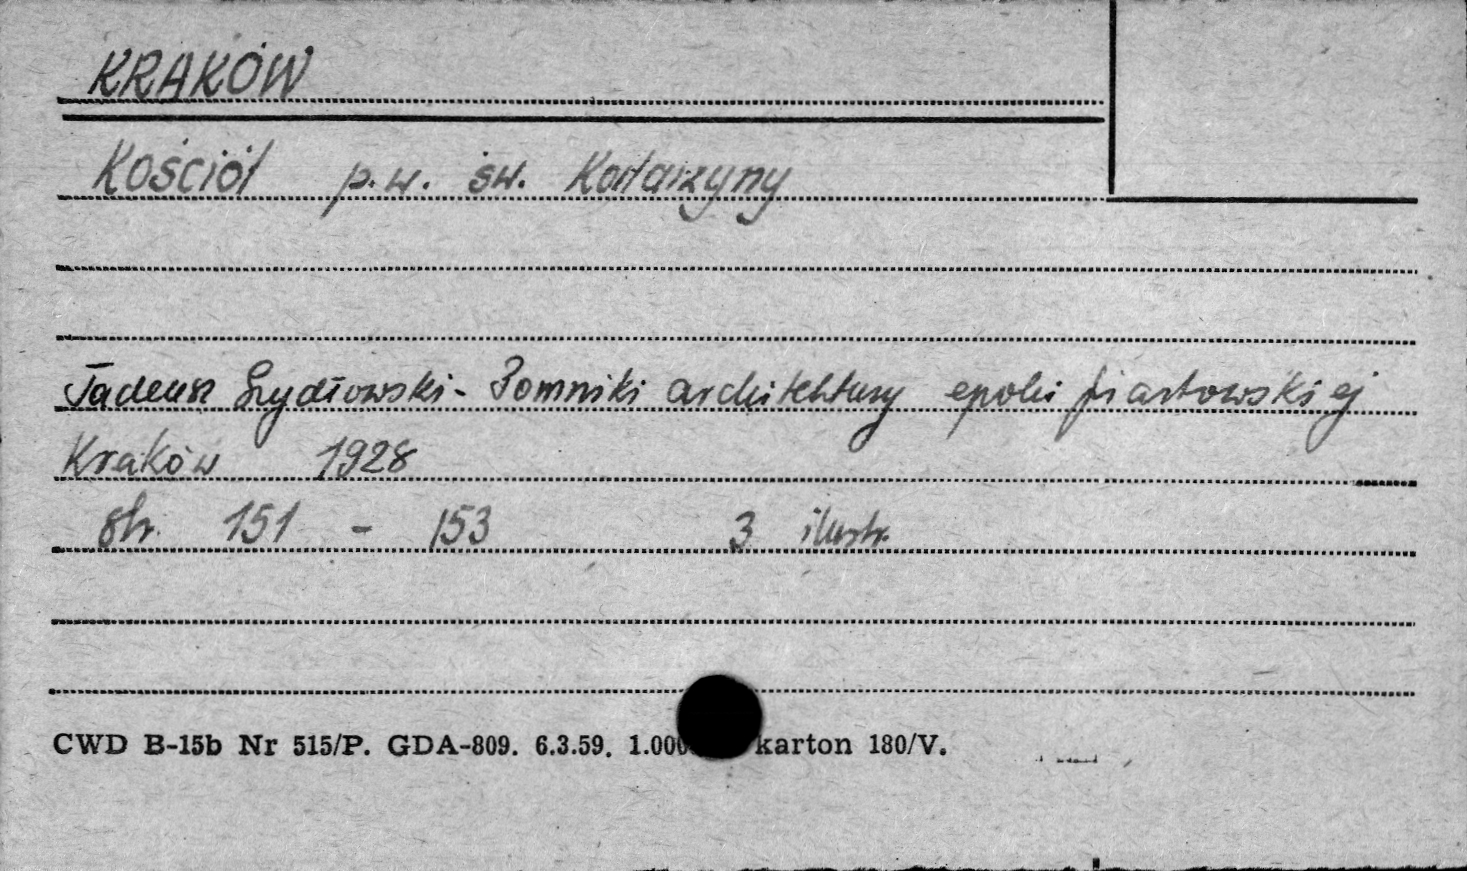 KRAKÓW
Kościół p.w. św. Katarzyny
Tadeusz Szydłowski - Pomniki architektury epoki piastowskiej
Kraków 1928
str. 151 - 153 3 ilustr.
CWD B-15b Nr 515/P. GDA-809. 6.3.59. 1.000 karton 180/V.